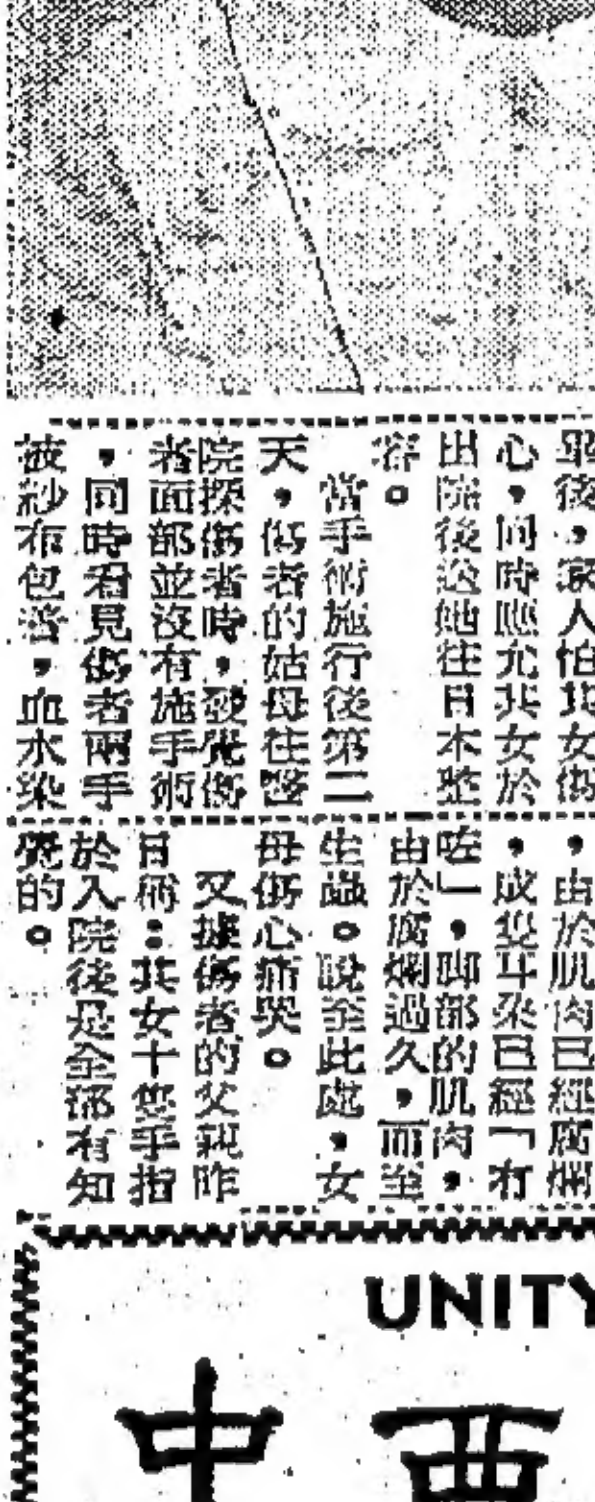 畢後，家人怕其女傷
心，同時應允其女於
出院後送她往日本整
容。
當手術施行後第二
天，傷者的姑母往醫
院探傷者時，發覺傷
者面部並沒有施手術
，同時看見傷者兩手
被紗布包着，血水染
，由於肌肉已經腐爛
，成隻耳朶已經「冇
咗」，脚部的肌肉，
由於腐爛過久，而至
生蟲。說至此處，女
母傷心痛哭。
又據傷者的父親昨
日稱：其女十隻手指
於入院後是全部有知
覺的。
UNITY
中西